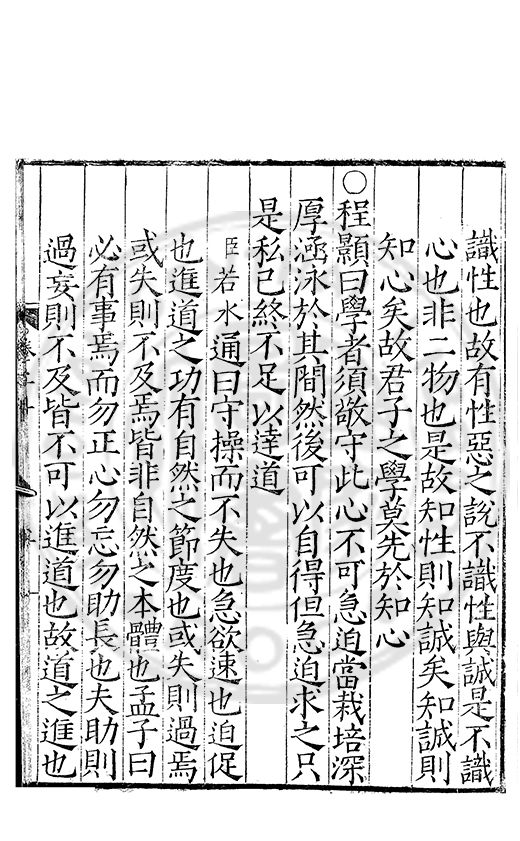 識性也故有性惡之說不識性與誠是不識
心也非二物也是故知性則知誠矣知誠則
知心矣故君子之學莫先於知心
○程顥曰學者須敬守此心不可急迫當栽培深
厚涵泳於其間然後可以自得但急迫求之只
是私已終不足以達道
臣若水通曰守操而不失也急欲速也迫促
也進道之功有自然之節度也或失則過焉
或失則不及焉皆非自然之本體也孟子曰
必有事焉而勿正心勿忘勿助長也夫助則
過妄則不及皆不可以進道也故道之進也